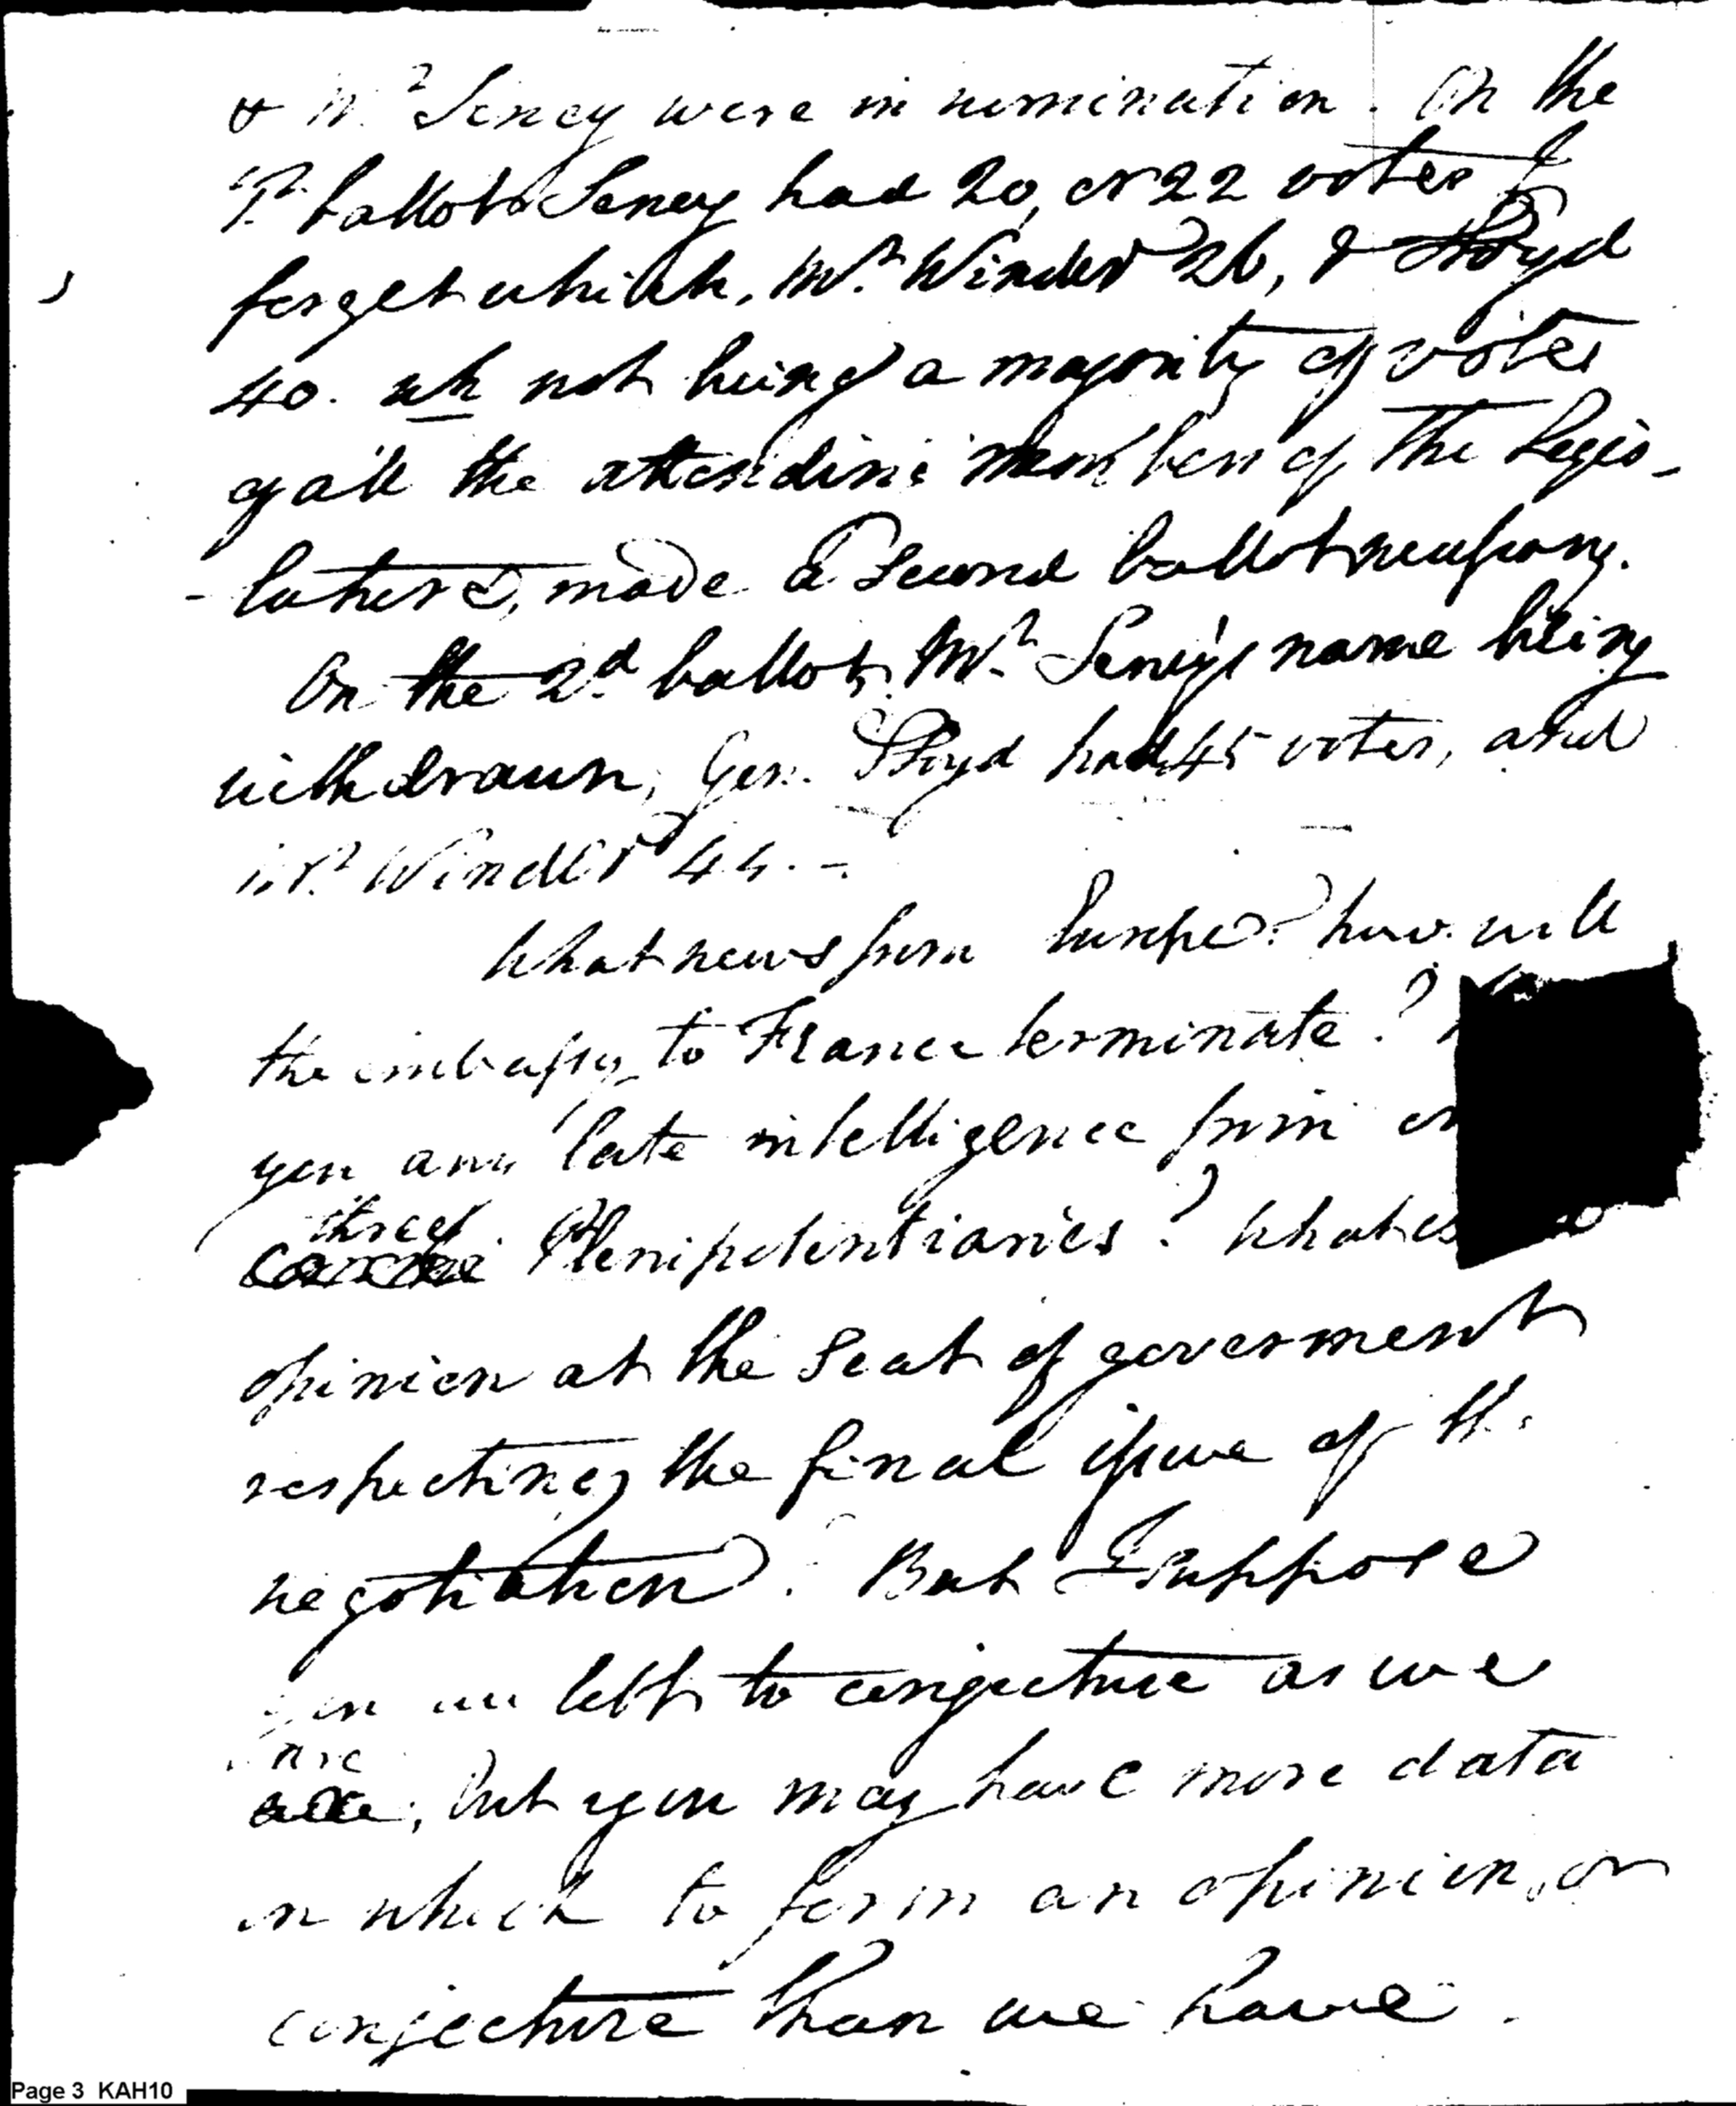 & Mr. Seney were in nomination. On the
1st. ballot Seney had 20, or 22 votes I
forget which, Mr. Winder 26, & Lloyd
40. wh not being a majority of votes
of all the attending members of the Legis-
-lature, made a Second ballot necessary.
On the 2d. ballot, Mr. Seney's name being
withdrawn, Gen. Lloyd had 45 votes, and
Mr. Winder 44. -.
What news from Europe? how will
the embassy to France terminate?
you any late intelligence from
three
Plenipotentiaries? What is
opinion at the Seat of goverment
respecting the final issue of the
negotiation? But I suppose
you are left to conjecture as we
are
; but you may have more data
on which to form an opinion, or
conjecture than we have.
Page 3 KAH10